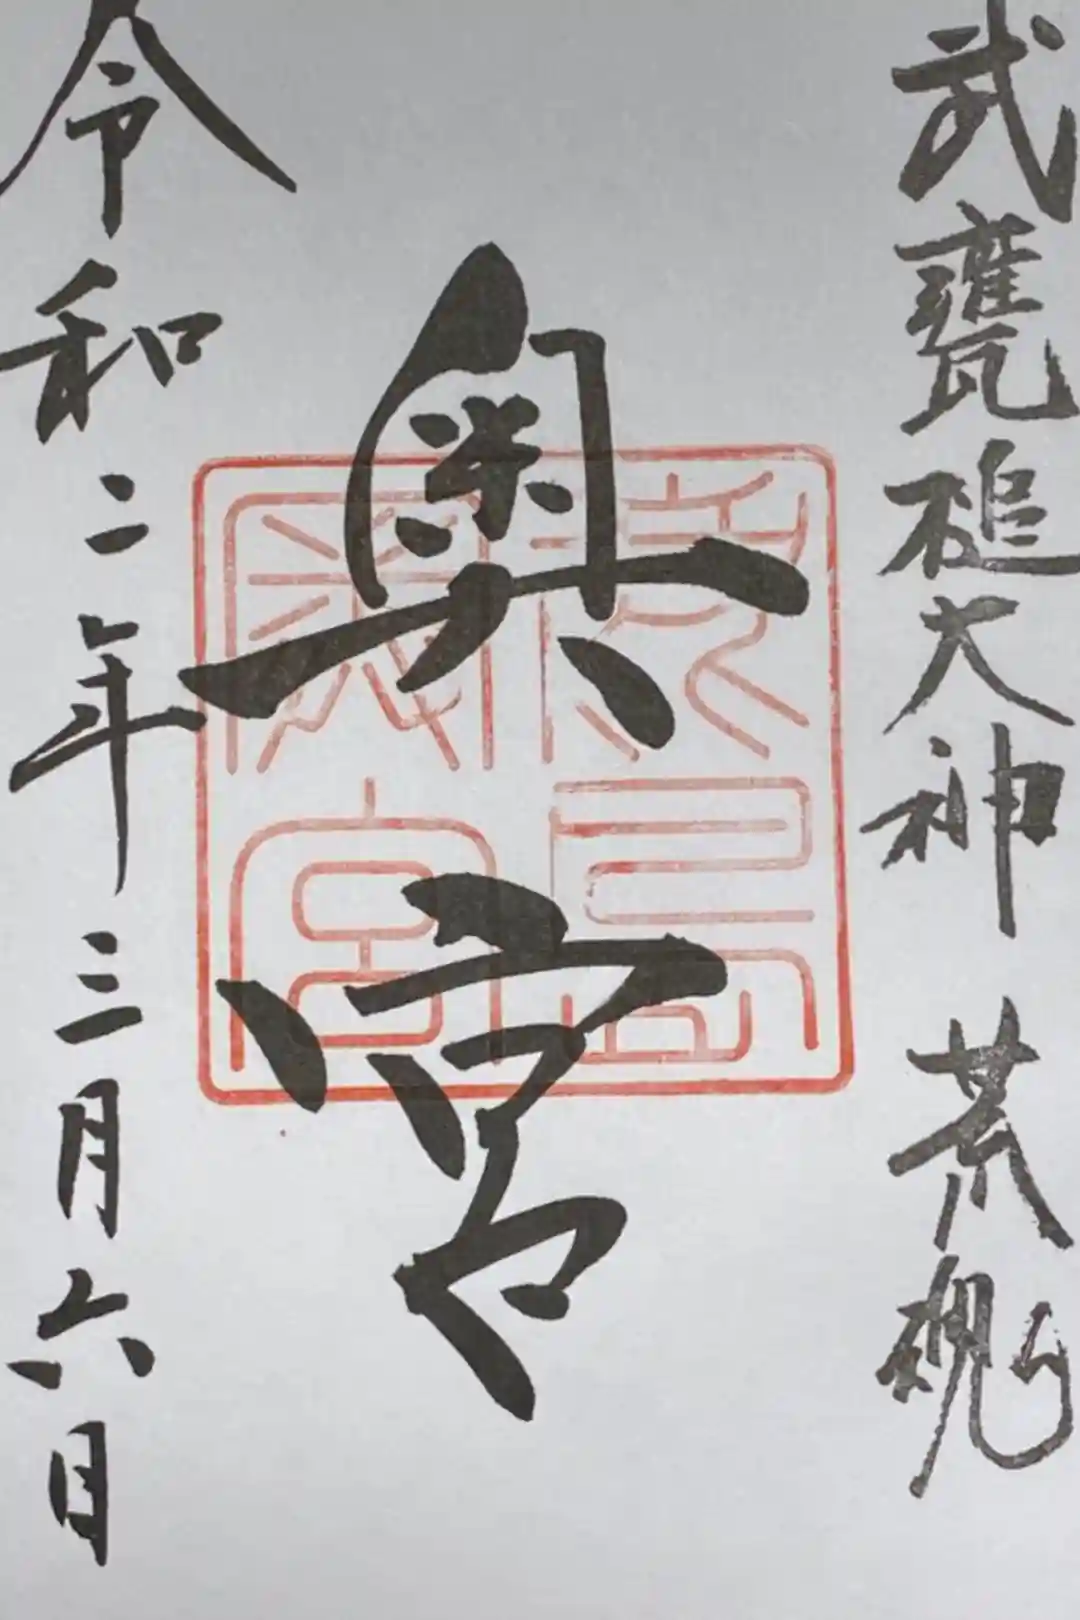 武甕槌大神 荒魂
奥宮
鹿島
奥宮
令和二年三月六日